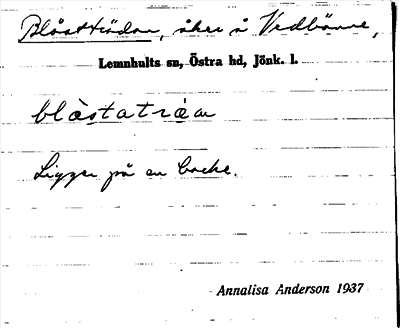 Blåstträdan, åker å Vedbänne,
Lemnhults sn, Östra hd, Jönk. l.
blåstatràan
Ligger på en backe.
Annalisa Anderson 1937